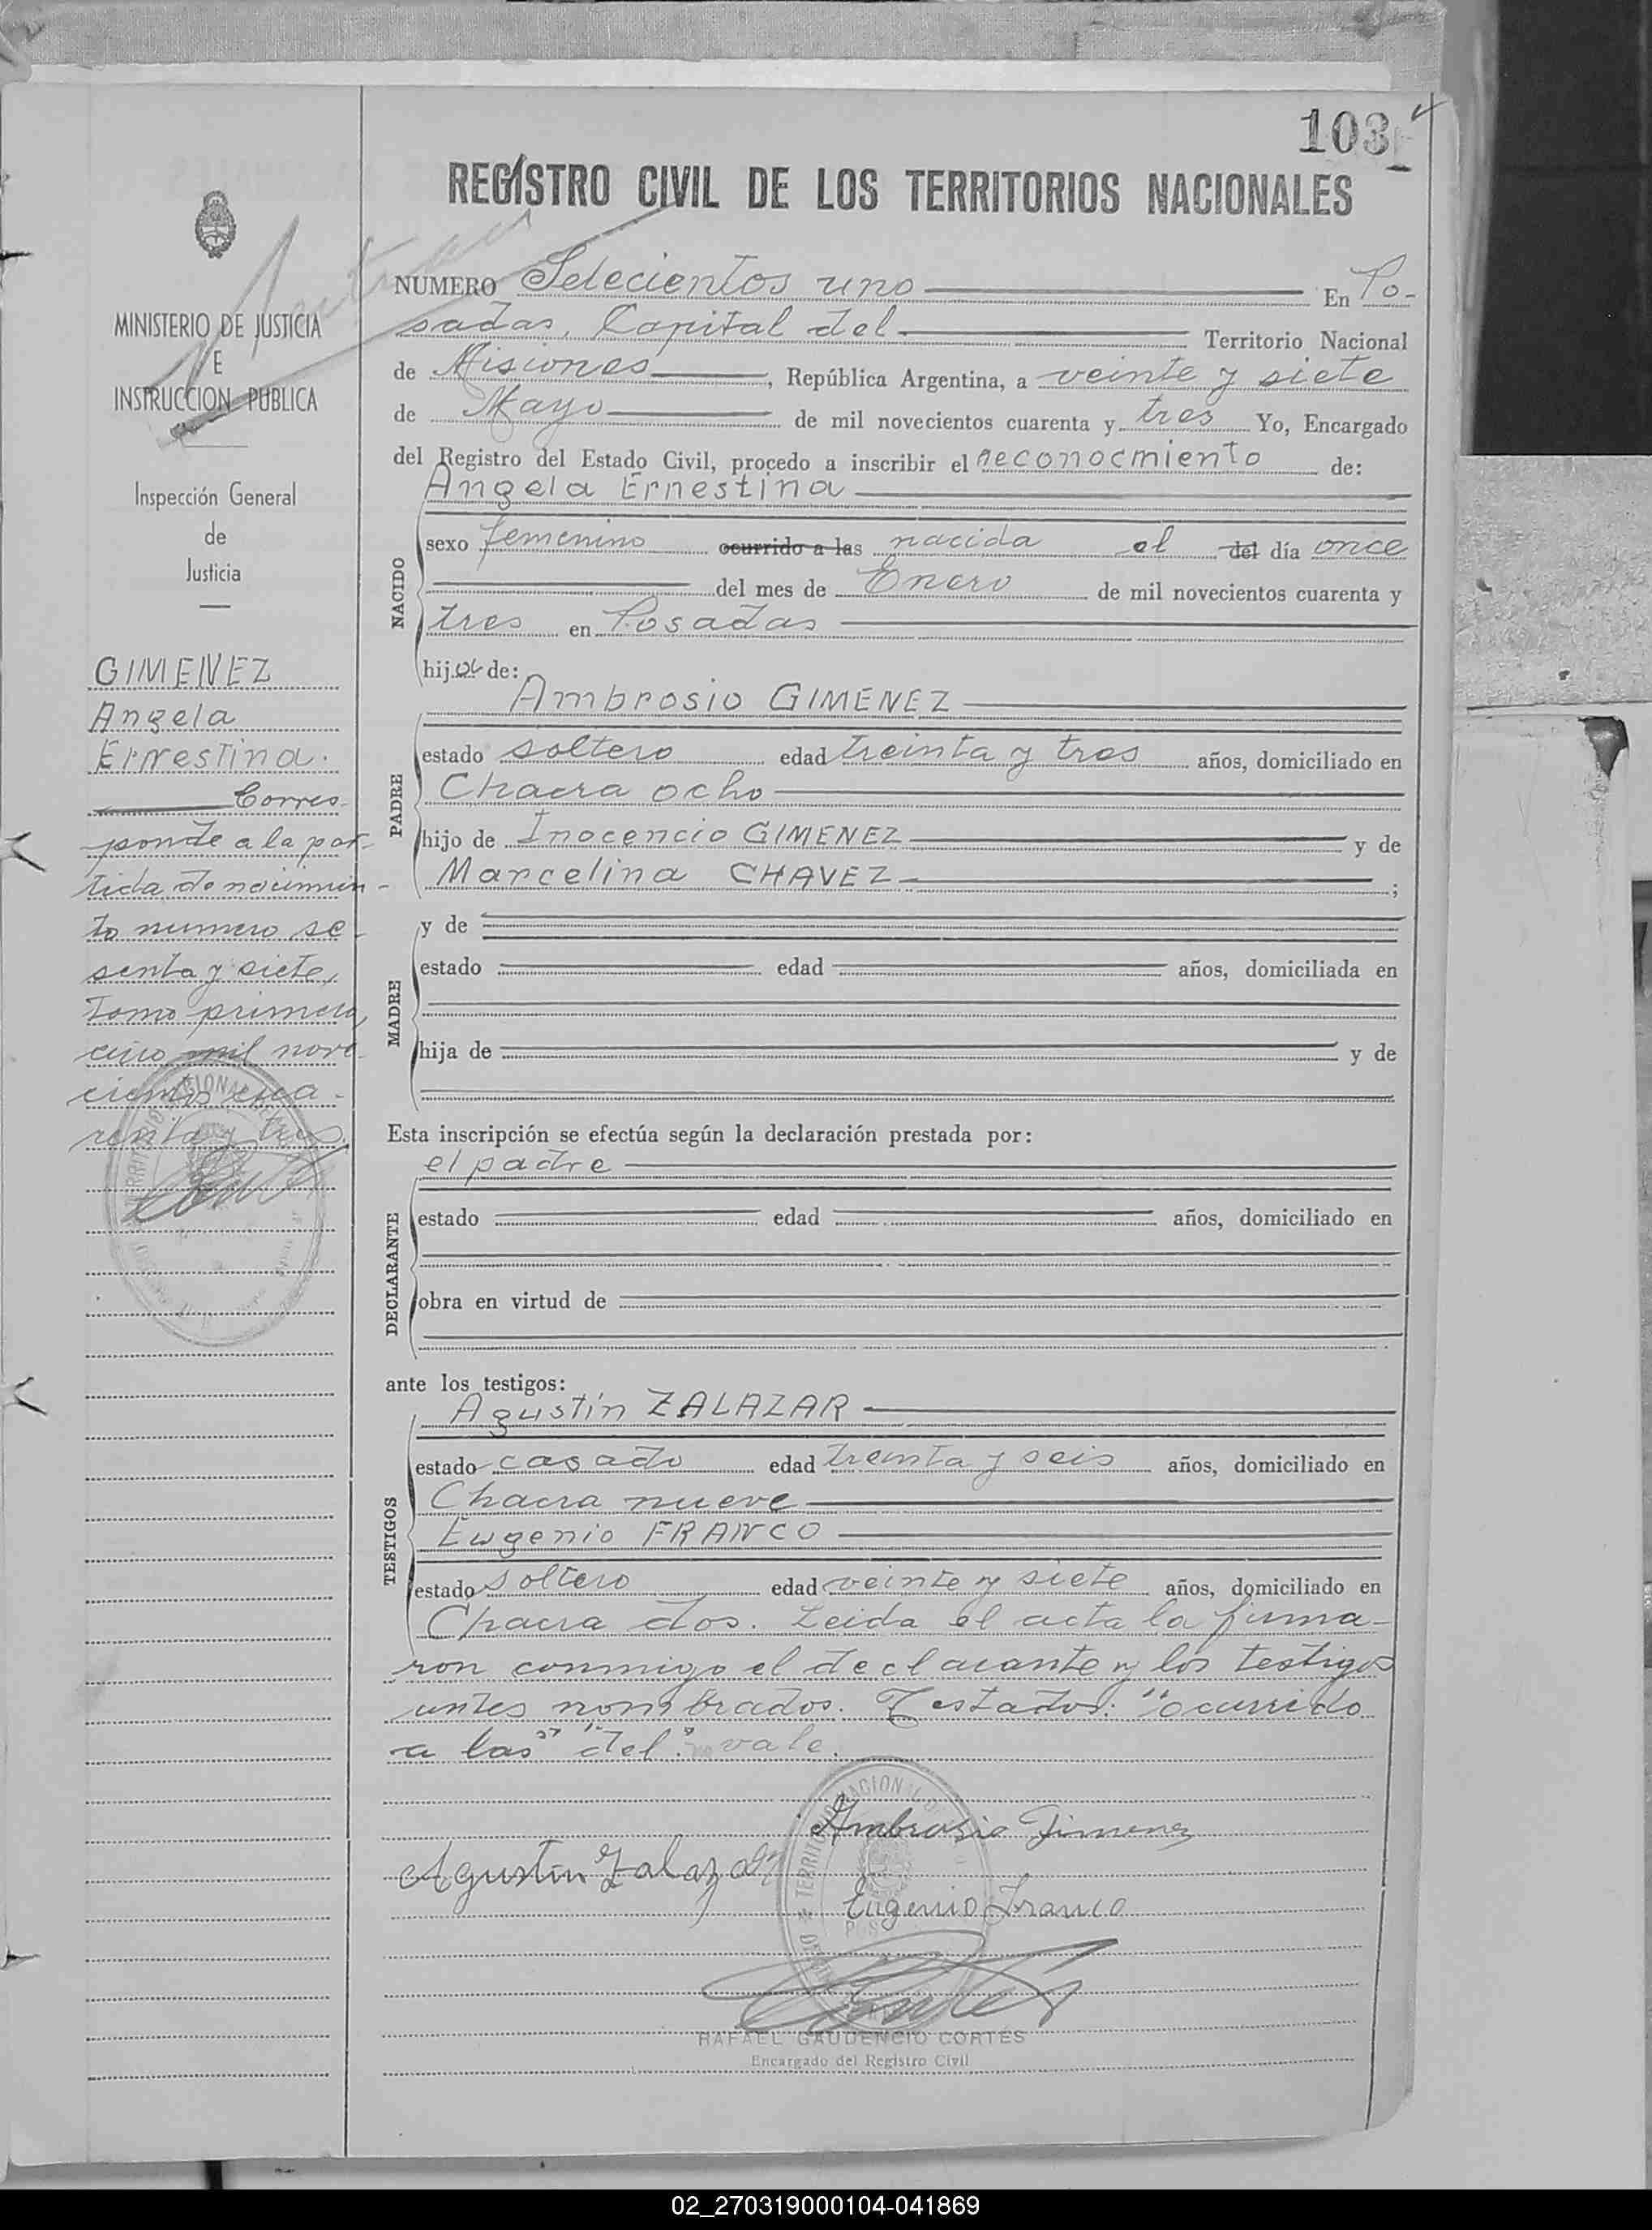 103
REGISTRO CIVIL DE LOS TERRITORIOS NACIONALES
MINISTERIO DE JUSTICIA
E
INSTRUCCION PUBLICA
Inspección General
de
Justicia
GIMENEZ
Angela
Ernestina.
Corres-
ponde a la par-
tida de nacimien-
to numero se-
senta y siete,
tomo primero,
año mil nove-
cientos cua-
renta y tres.
NUMERO Setecientos uno En Po-
sadas, Capital del Territorio Nacional
de Misiones, República Argentina, a veinte y siete
de Mayo de mil novecientos cuarenta y tres Yo, Encargado
del Registro del Estado Civil, procedo a inscribir el reconocmiento de:
NACIDO
Angela Ernestina
sexo femenino ocurrido a las nacida el del día once
del mes de Enero de mil novecientos cuarenta y
tres en Posadas
hija de:
PADRE
Ambrosio GIMENEZ
estado soltero edad treinta y tres años, domiciliado en
Chacra ocho
hijo de Inocencio GIMENEZ y de
Marcelina CHAVEZ ;
MADRE
y de
estado edad años, domiciliada en
hija de y de
Esta inscripción se efectúa según la declaración prestada por:
DECLARANTE
el padre
estado edad años, domiciliado en
obra en virtud de
ante los testigos:
TESTIGOS
Agustín ZALAZAR
estado casado edad treinta y seis años, domiciliado en
Chacra nueve
Eugenio FRANCO
estado soltero edad veinte y siete años, domiciliado en
Chacra dos. Leida el acta la firma-
ron conmigo el declarante y los testigos
antes nombrados. Testados: "ocurrido
a las" "del". vale.
Ambrosio Gimenez
Agustin Zalazar
Eugenio Franco
RAFAEL GAUDENCIO CORTES
Encargado del Registro Civil
02_270319000104-041869